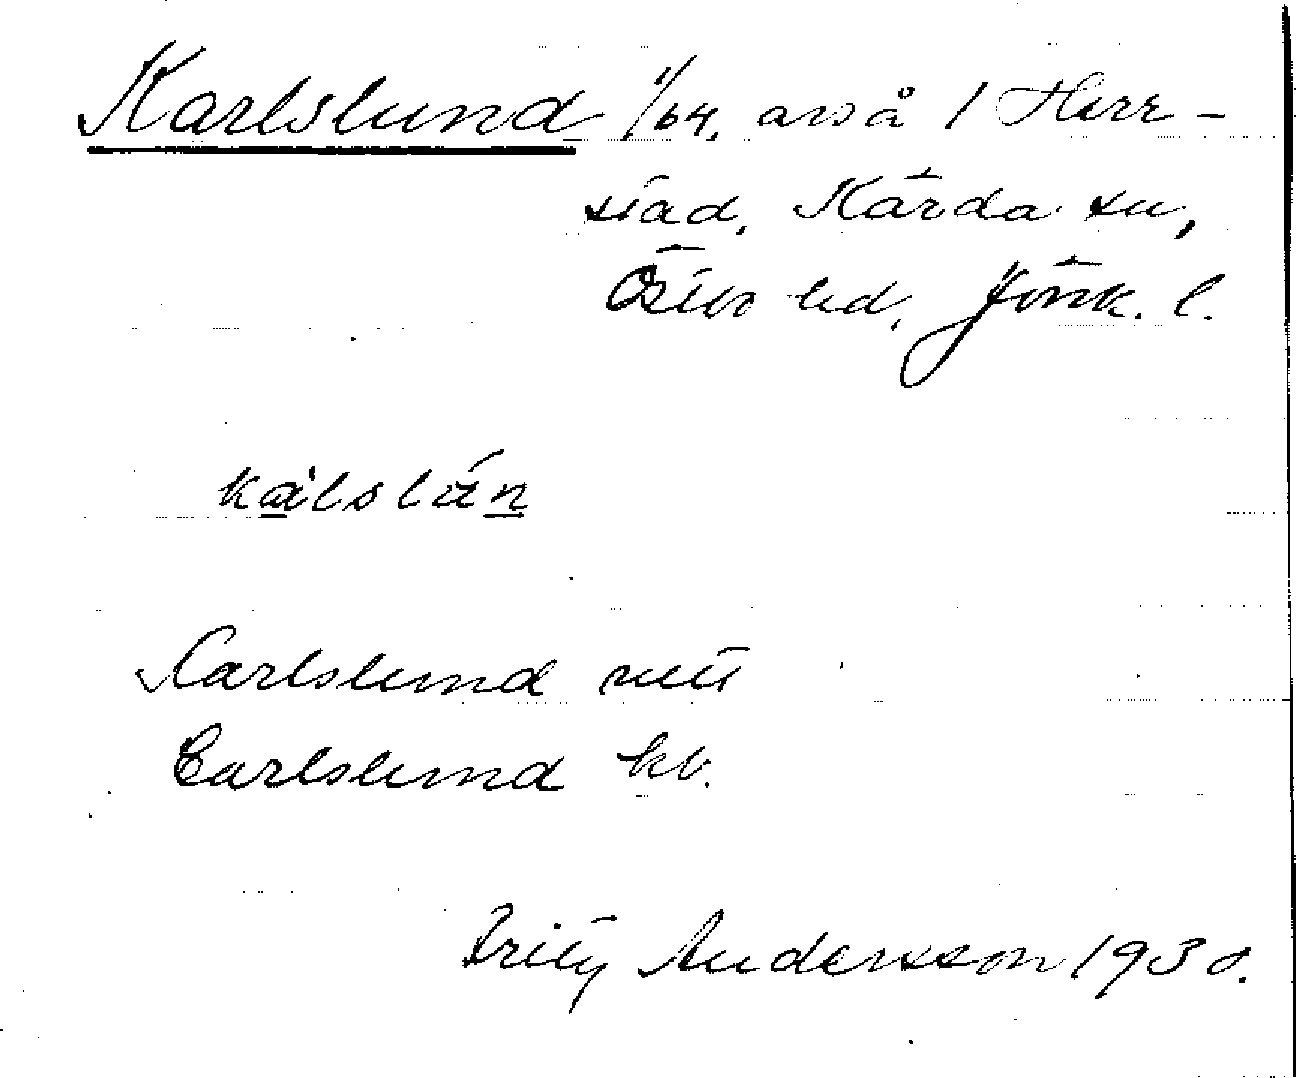 Karlslund 1/64, avs å 1 Herr-
stad, Kärda sn,
Östbo hd, Jönk. l.
kàlslún
Karlslund
Carlslund kb.
Fritz Andersson 1930.